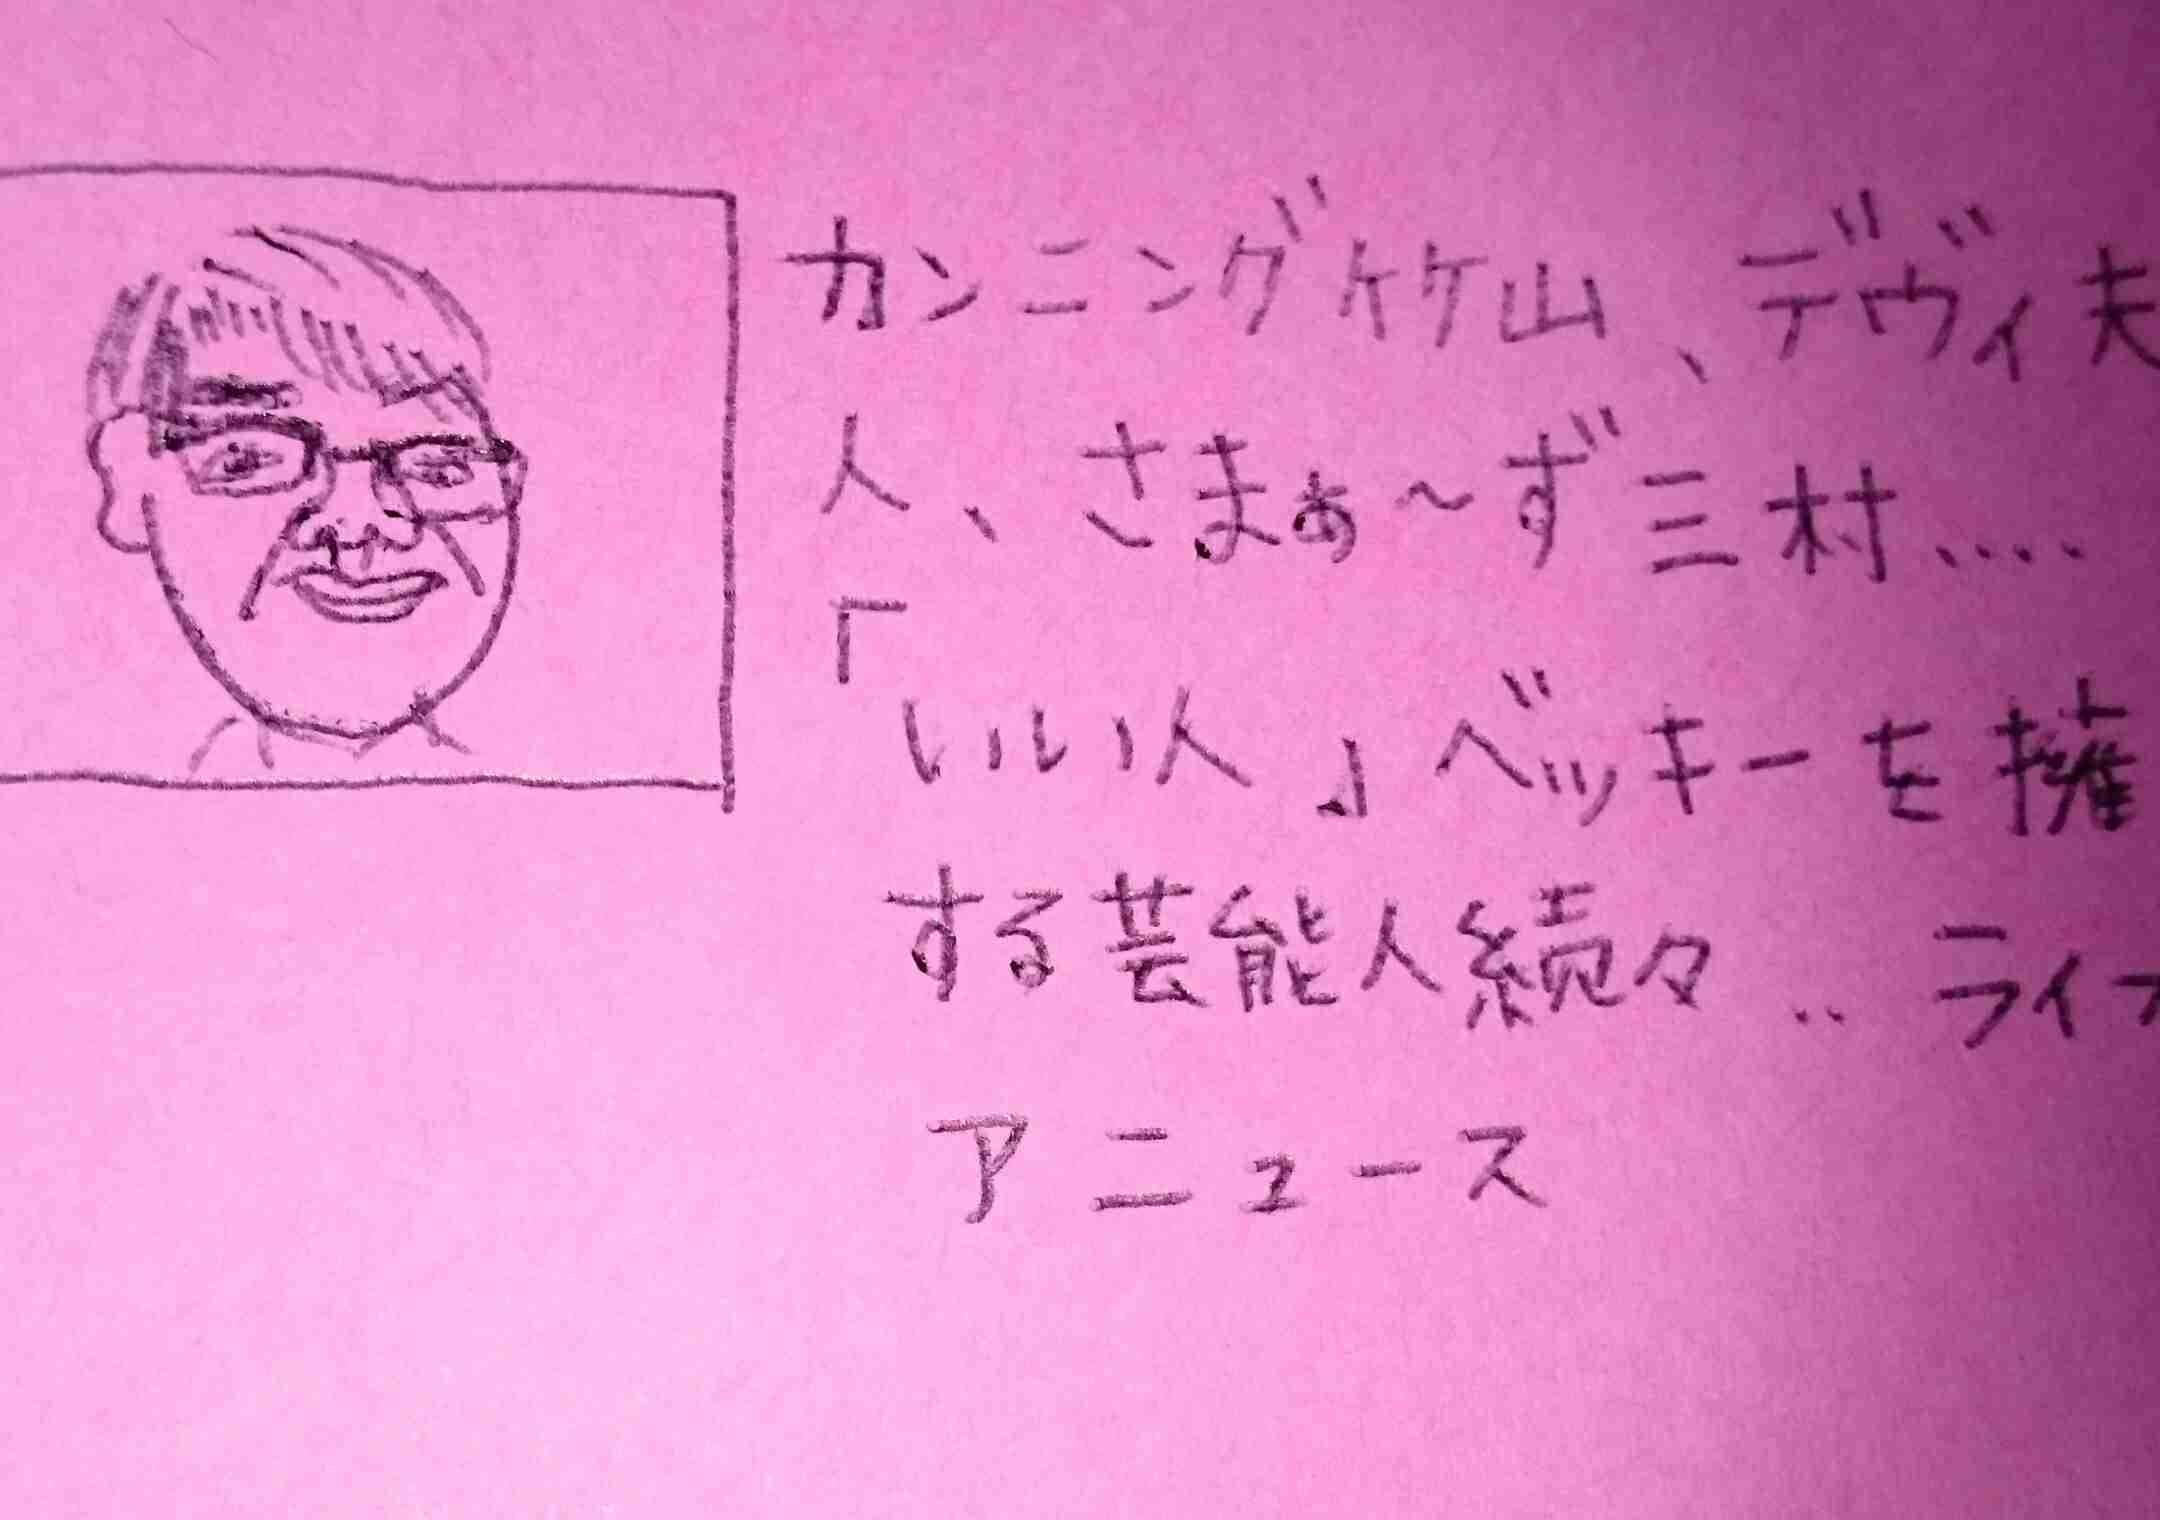 カンニング竹山、デヴィ夫
人、さまぁ～ず三村....
「いい人」ベッキーを擁
する芸能人続々..ライフ
アニュース